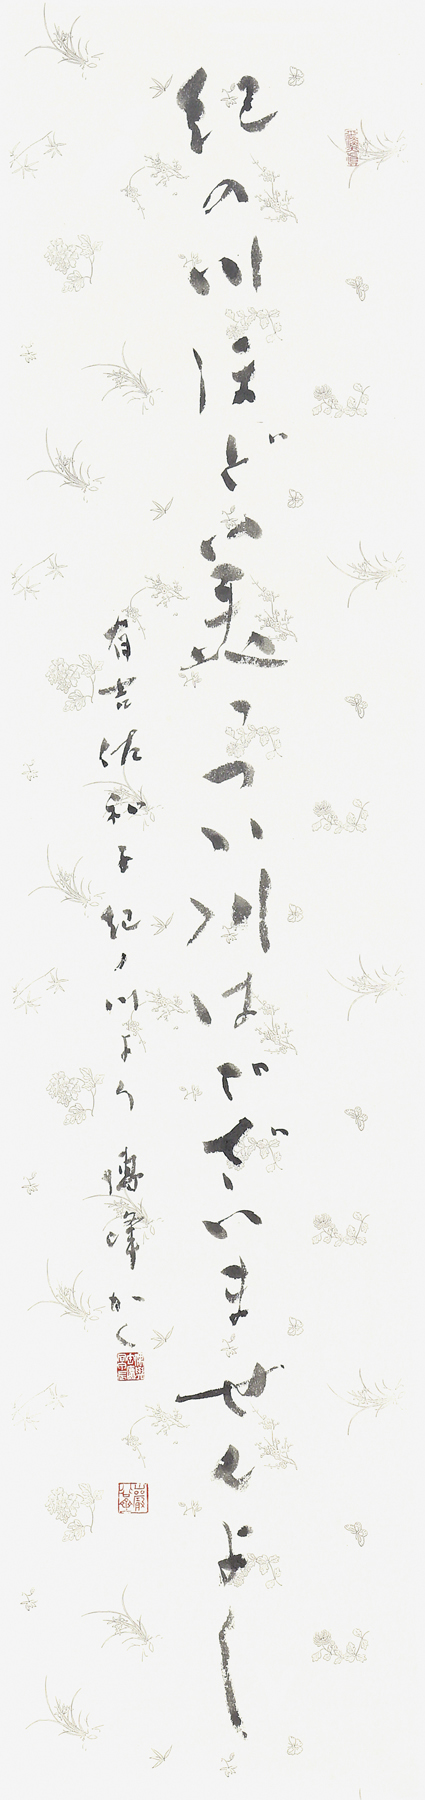 紀の川ほど美っつい川はございませんよし
有吉佐和子紀ノ川より 峰かく